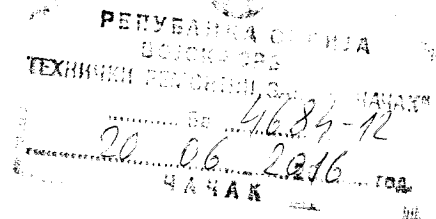 РЕПУБЛИКА СРБИЈА
ТЕХНИЧКИ РЕМОНТНИ ЧАЧАК"
бр 4684-12
20 06 2016 год.
ЧАЧАК